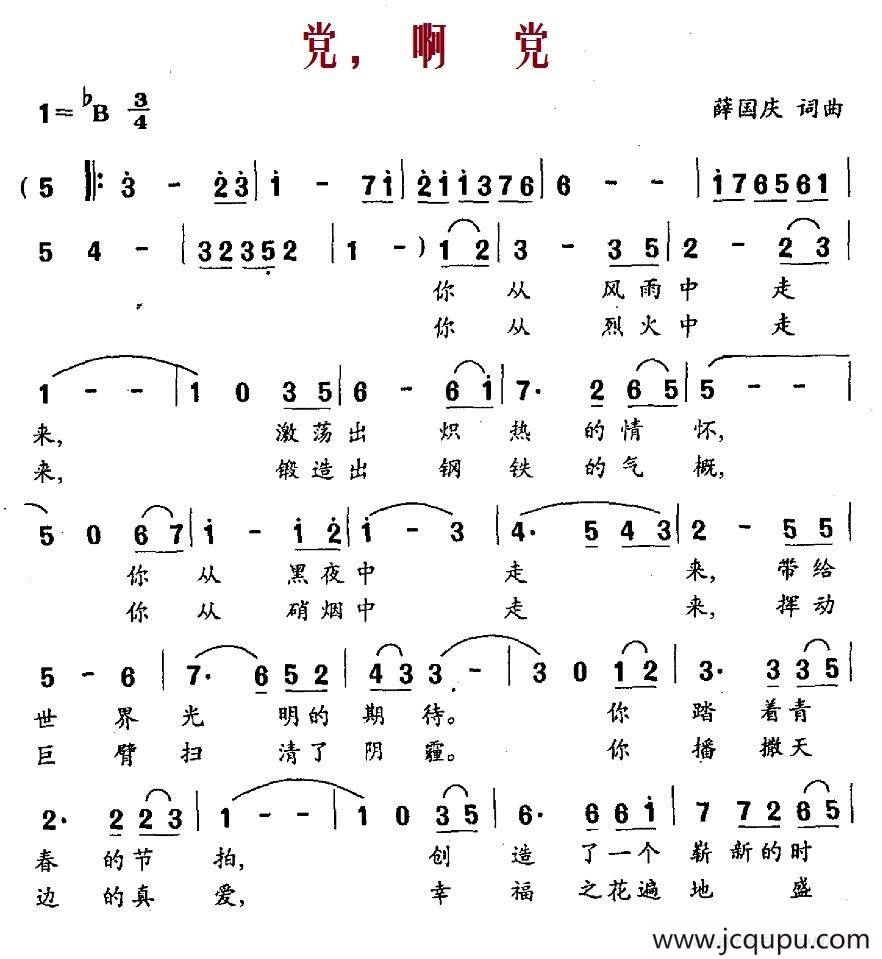 党，啊 党
1=♭B 3/4
薛国庆 词曲
(5 ‖: 3̇ - 2̇3̇ | 1̇ - 71̇ | 2̇1̇1̇376 | 6 - - | 1̇76561 |
5 4 - | 32352 | 1 - ) 12 | 3 - 35 | 2 - 23 |
你 从 风雨中 走
你 从 烈火中 走
1 - - | 1 0 35 | 6 - 61̇ | 7· 2 65 | 5 - - |
来, 激荡出 炽 热 的情 怀,
来, 锻造出 钢 铁 的气 概,
5 0 67 | 1̇ - 1̇2̇ | 1̇ - 3 | 4· 5 43 | 2 - 55 |
你 从 黑夜中 走 来, 带给
你 从 硝烟中 走 来, 挥动
5 - 6 | 7· 6 52 | 43 3 - | 3 0 12 | 3· 3 35 |
世 界 光 明的 期 待。 你 踏 着青
巨 臂 扫 清了 阴 霾。 你 播 撒天
2· 2 23 | 1 - - | 1 0 35 | 6· 6 61̇ | 7 72 65 |
春 的节 拍, 创 造 了一个 崭 新的时
边 的真 爱, 幸 福 之花遍 地 盛
www.jcqupu.com